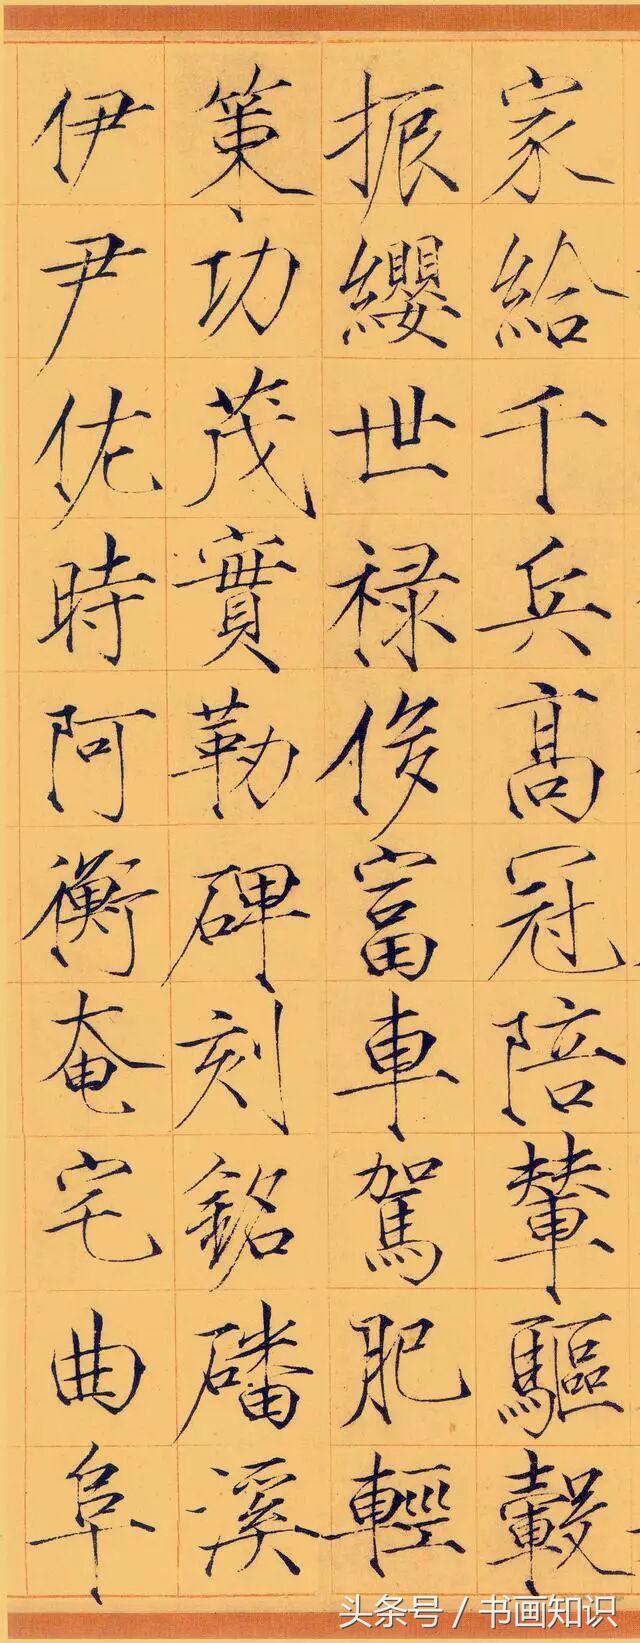 家給千兵高冠陪輦驅轂
振纓世祿侈富車駕肥輕
策功茂實勒碑刻銘磻溪
伊尹佐時阿衡奄宅曲阜
头条号 / 书画知识